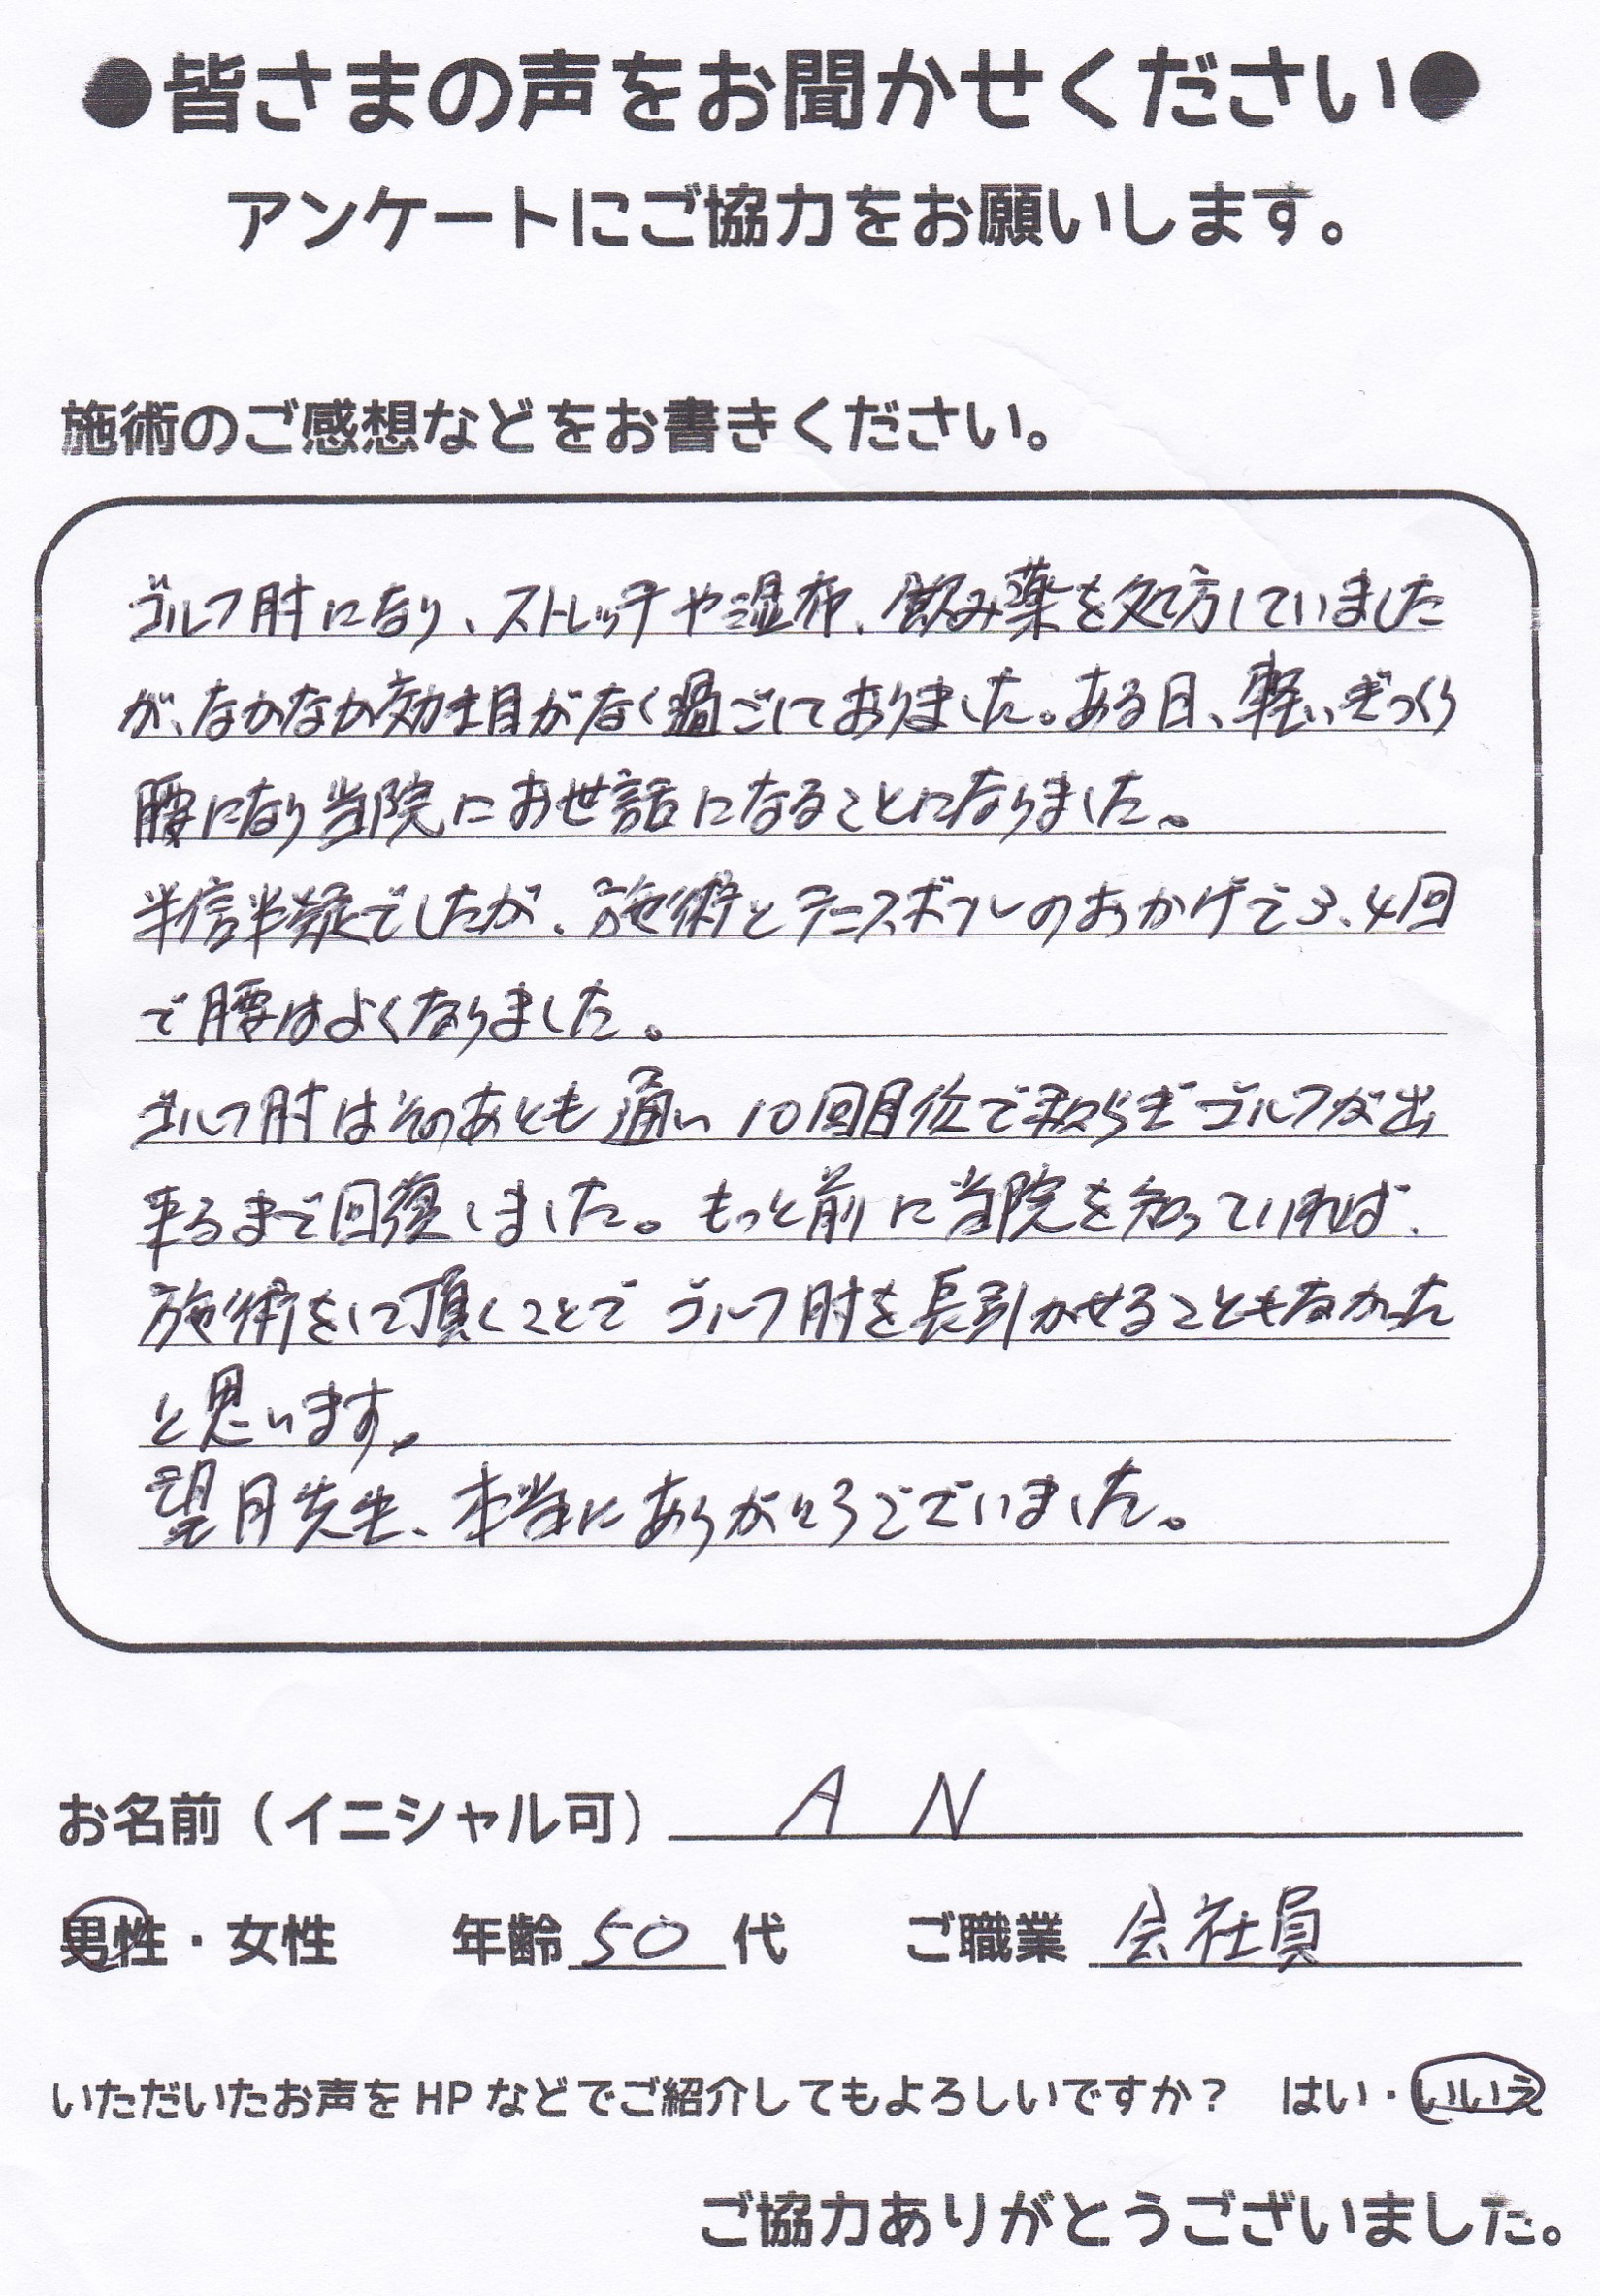 ●皆さまの声をお聞かせください●
アンケートにご協力をお願いします。
施術のご感想などをお書きください。
ゴルフ肘になり、ストレッチや湿布、飲み薬を処方していました
が、なかなか効き目がなく過ごしておりました。ある日、軽いぎっくり
腰になり当院にお世話になることになりました。
半信半疑でしたが、施術とテニスボールのおかげで3、4回
で腰はよくなりました。
ゴルフ肘はそのあとも通い10回目位で和らぎゴルフが出
来るまで回復しました。もっと前に当院を知っていれば、
施術をして頂くことでゴルフ肘を長引かせることもなかった
と思います。
望月先生、本当にありがとうございました。
お名前（イニシャル可） A N
男性・女性 年齢 50 代 ご職業 会社員
いただいたお声をHPなどでご紹介してもよろしいですか？ はい・いいえ
ご協力ありがとうございました。